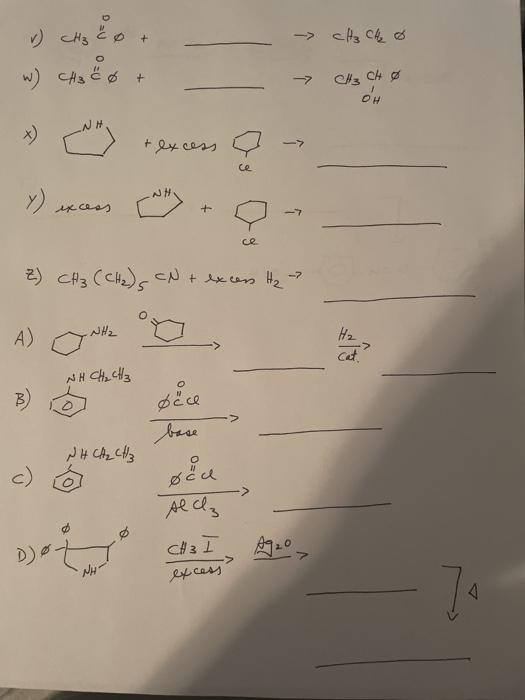 v) CH3 C̈ ø + ______ → CH3 CH2 ø
O
w) CH3 C ø + ______ → CH3 CH ø
O
OH
x) NH + excess → ______
Cl
Y) excess NH + → ______
Cl
Z) CH3 (CH2)5 CN + excess H2 → ______
A) NH2 O → ______ H2 cat. > ______
NH CH2 CH3
B) ø C Cl → ______
O
base
NH CH2 CH3
C) ø C Cl → ______
O
Al Cl3
D) ø ø ø NH CH3 I excess → Ag2O → ______
Δ
______